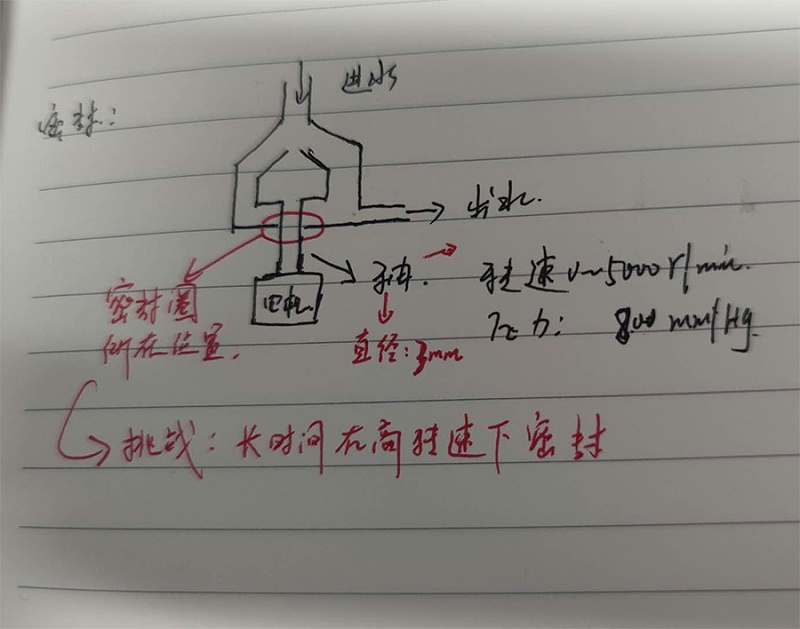 密封:
进水
出水.
密封圈
所在位置.
电机
轴.
直径:3mm
转速0~5000r/min.
压力: 800mm/Hg.
挑战:长时间在高转速下密封